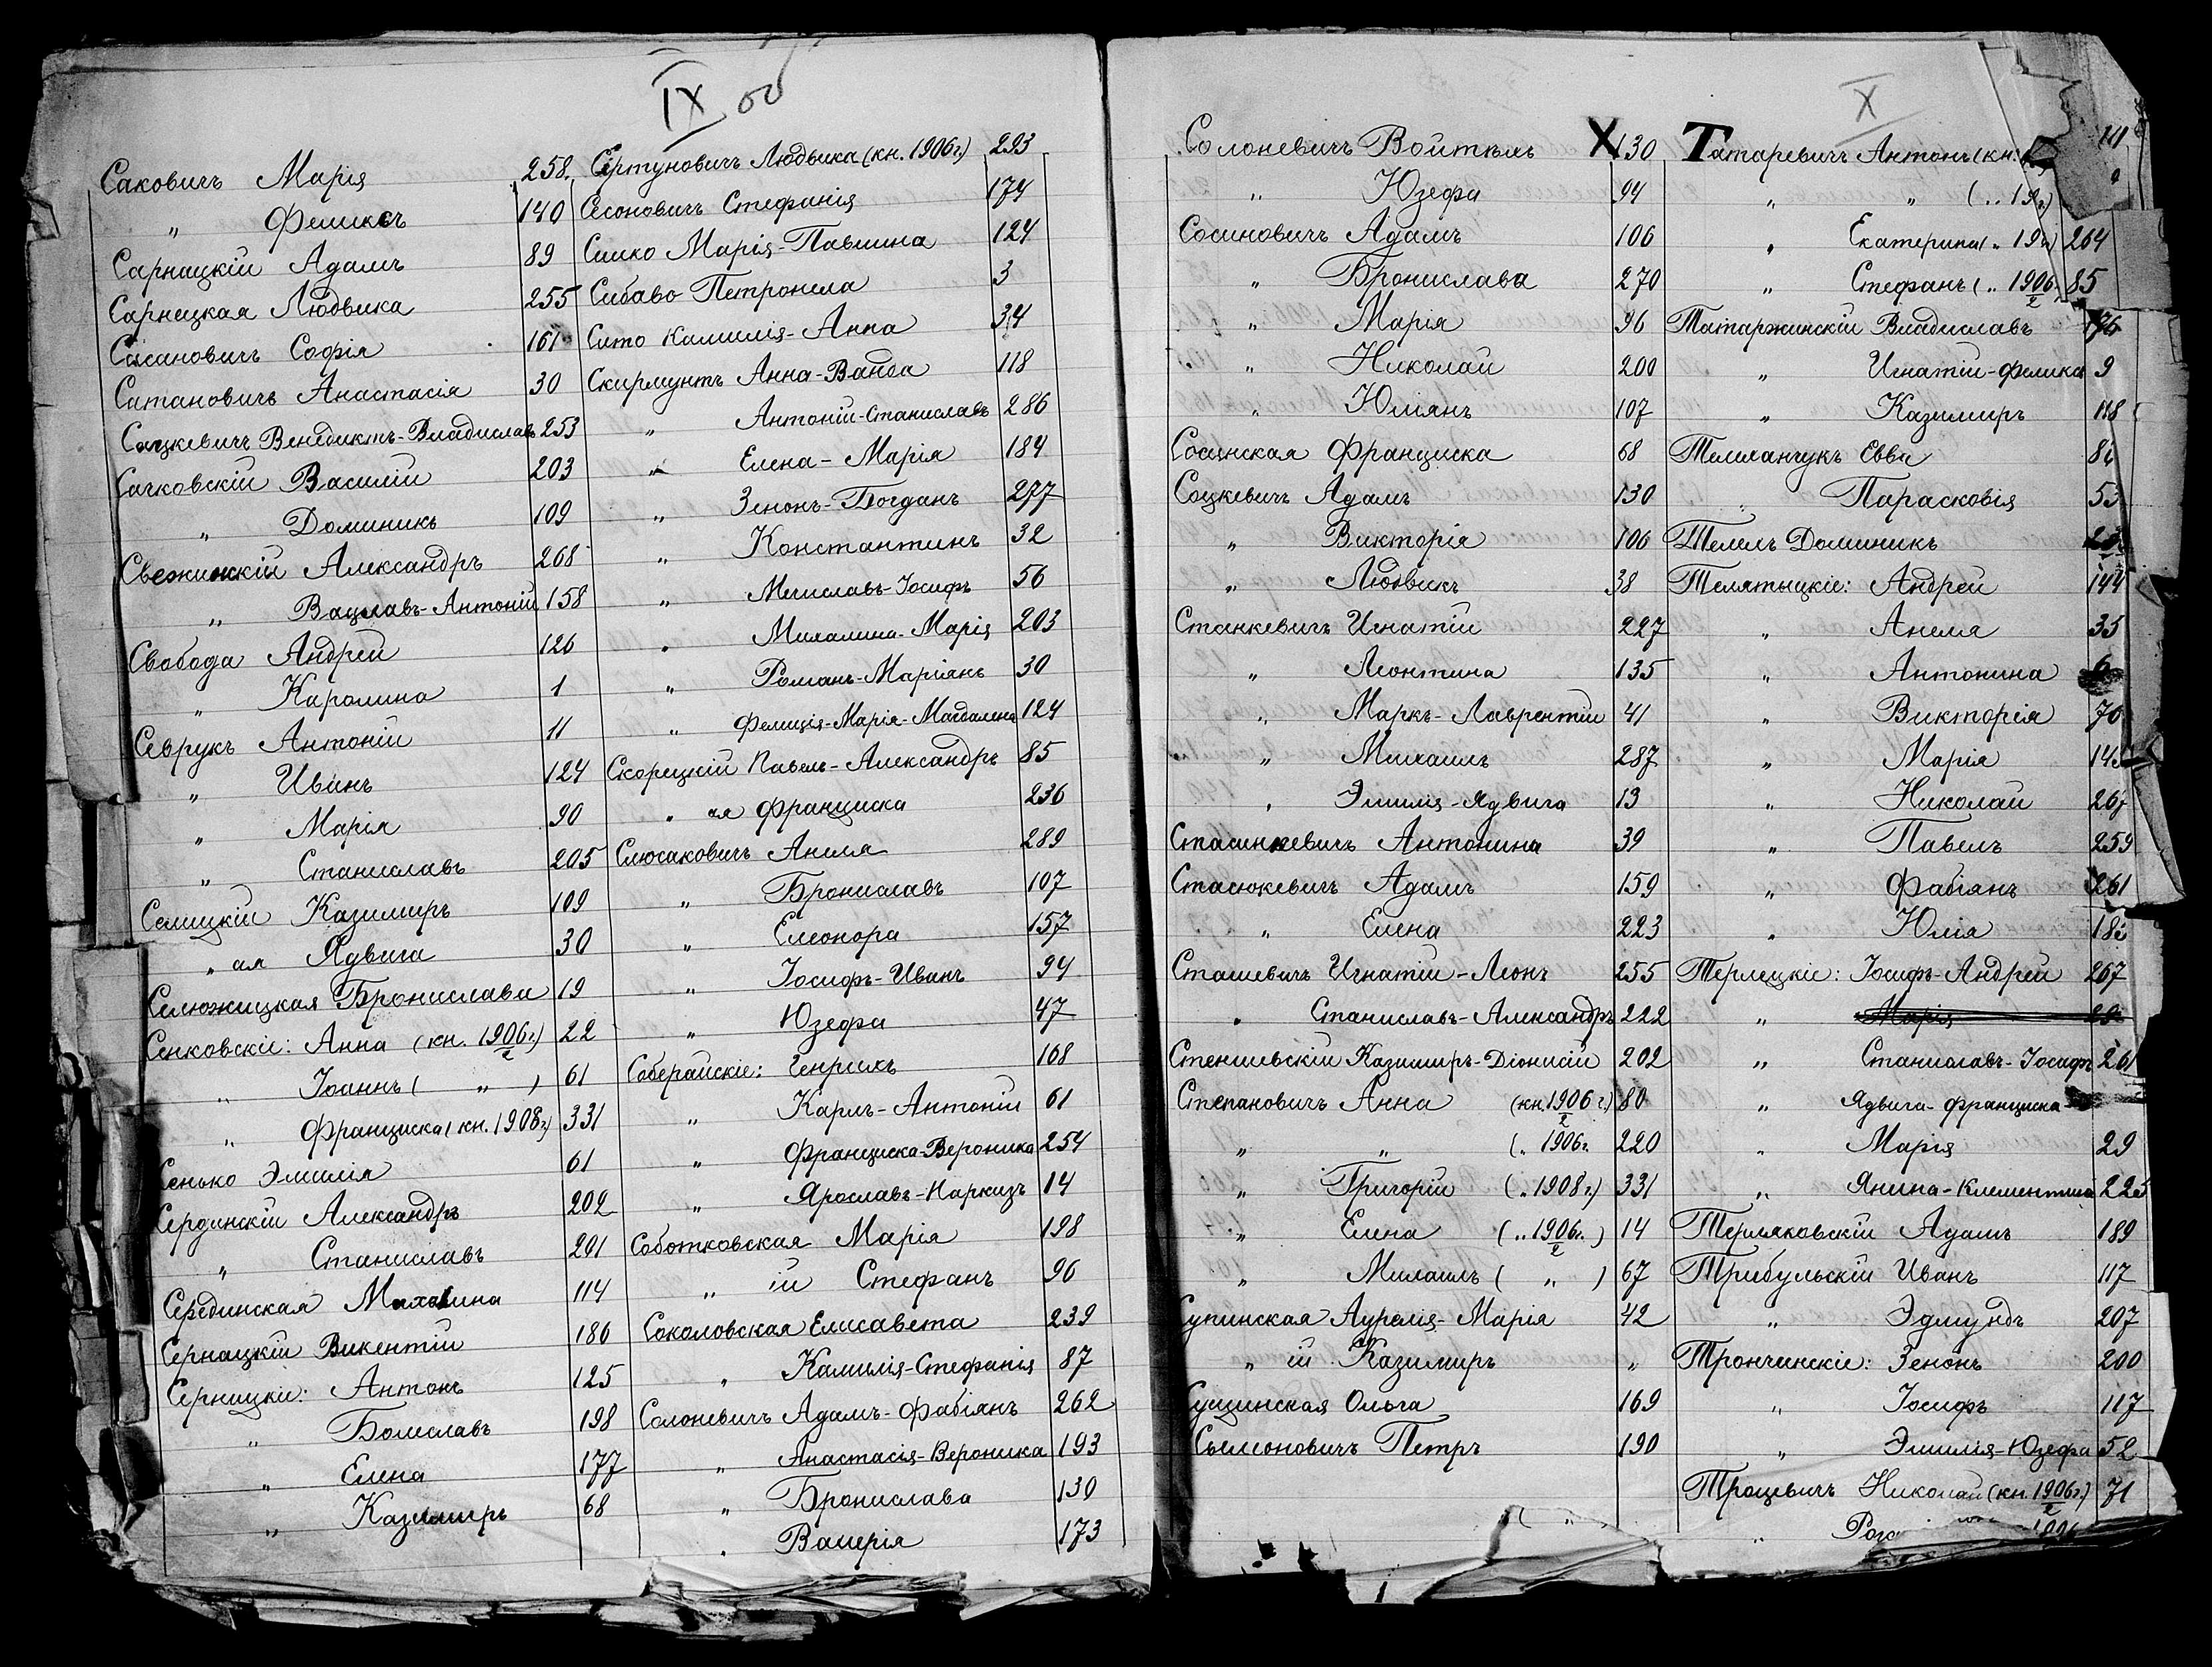 IX
Саковичъ Марія 258.
„ Феликсъ 140
Сарнацкій Адамъ 89
Сарнецкая Людвика 255
Сасановичъ Софія 161
Ситановичъ Анастасія 30
Сацкевичъ Венедиктъ-Владиславъ 253
Сачковскій Василій 203
„ Доминикъ 109
Свежинскій Александръ 268
„ Вацлавъ-Антоній 158
Свобода Андрей 126
„ Каролина 1
Севрукъ Антоній 11
„ Иванъ 124
„ Марія 90
„ Станиславъ 205
Селицкій Казимиръ 109
„ ая Ядвига 30
Селюжицкая Бронислава 19
Сенковскіе: Анна (кн. 1906 г.) 22
„ Іоаннъ ( „ ) 61
„ Франциска (кн. 1908 г.) 331
Сенько Эмилія 61
Сердинскій Александръ 202
„ Станиславъ 291
Серединская Михалина 114
Сернацкій Викентій 186
Серницкіе: Антонъ 125
„ Болеславъ 198
„ Елена 177
„ Казимиръ 68
Сертуновичъ Людвика (кн. 1906 г.) 293
Сесоновичъ Стефанія 174
Сишко Марія-Павлина 124
Сибаво Петронела 3
Сито Камилія-Анна 34
Скирмунтъ Анна-Ванда 118
„ Антоній-Станиславъ 286
„ Елена-Марія 184
„ Зенонъ-Богданъ 277
„ Константинъ 32
„ Мечиславъ-Іосифъ 56
„ Михалина-Марія 203
„ Романъ-Маріянъ 30
„ Фелиція-Марія-Магдалена 124
Скорецкій Павелъ-Александръ 85
„ ая Франциска 236
Слюсаковичъ Анеля 289
„ Брониславъ 107
„ Елеонора 157
„ Іосифъ-Иванъ 94
„ Юзефа 47
Соберайскіе: Генрихъ 168
„ Карлъ-Антоній 61
„ Франциска-Вероника 254
„ Ярославъ-Наркизъ 14
Соботковская Марія 198
„ ій Стефанъ 96
Соколовская Елисавета 239
„ Камилія-Стефанія 87
Солоневичъ Адамъ-Фабіянъ 262
„ Анастасія-Вероника 193
„ Бронислава 130
„ Валерія 173
X
Солоневичъ Войтѣхъ X 130
„ Юзефа 94
Сосиновичъ Адамъ 106
„ Бронислава 270
„ Марія 96
„ Николай 200
„ Юліянъ 107
Сосинская Франциска 68
Соцкевичъ Адамъ 130
„ Викторія 106
„ Людвикъ 38
Станкевичъ Игнатій 227
„ Леонтина 135
„ Маркъ-Лаврентій 41
„ Михаилъ 287
„ Эмилія-Ядвига 13
Стасинкевичъ Антонина 39
Стасюкевичъ Адамъ 159
„ Елена 223
Сташевичъ Игнатій-Леонъ 255
„ Станиславъ-Александръ 222
Стеншевскій Казимиръ-Діонисій 202
Степановичъ Анна (кн. 1906 г.) 80
„ „ („ 1906 г. 220
„ Григорій („ 1908 г.) 331
„ Елена („ 1906 г.) 14
„ Михаилъ ( „ ) 67
Супинская Аурелія-Марія 42
„ ій Казимиръ „
Сущинская Ольга 169
Сымоновичъ Петръ 190
Татаревичъ Антонъ (кн.
„ „ („ 19
„ Екатерина („ 19 264
„ Стефанъ („ 1906 85
Татаржинскій Владиславъ 176
„ Игнатій-Феликсъ 9
„ Казимиръ 118
Телиланчукъ Евва
„ Парасковія 53
Телель Доминикъ
Телятыцкіе: Андрей 144
„ Анеля 35
„ Антонина 6
„ Викторія 70
„ Марія
„ Николай 267
„ Павелъ 259
„ Фабіянъ 261
„ Юлія
Терлецкіе: Іосифъ-Андрей 267
„ Марія
„ Станиславъ-Іосифъ 261
„ Ядвига-Франциска
„ Марія 29
„ Янина-Клементина 225
Терляковскій Адамъ 189
Трибульскій Иванъ 117
„ Эдмундъ 207
Трончинскіе: Зенонъ 200
„ Іосифъ 117
„ Эмилія-Юзефа 52
Троцевичъ Николай (кн. 1906 г.) 71
„